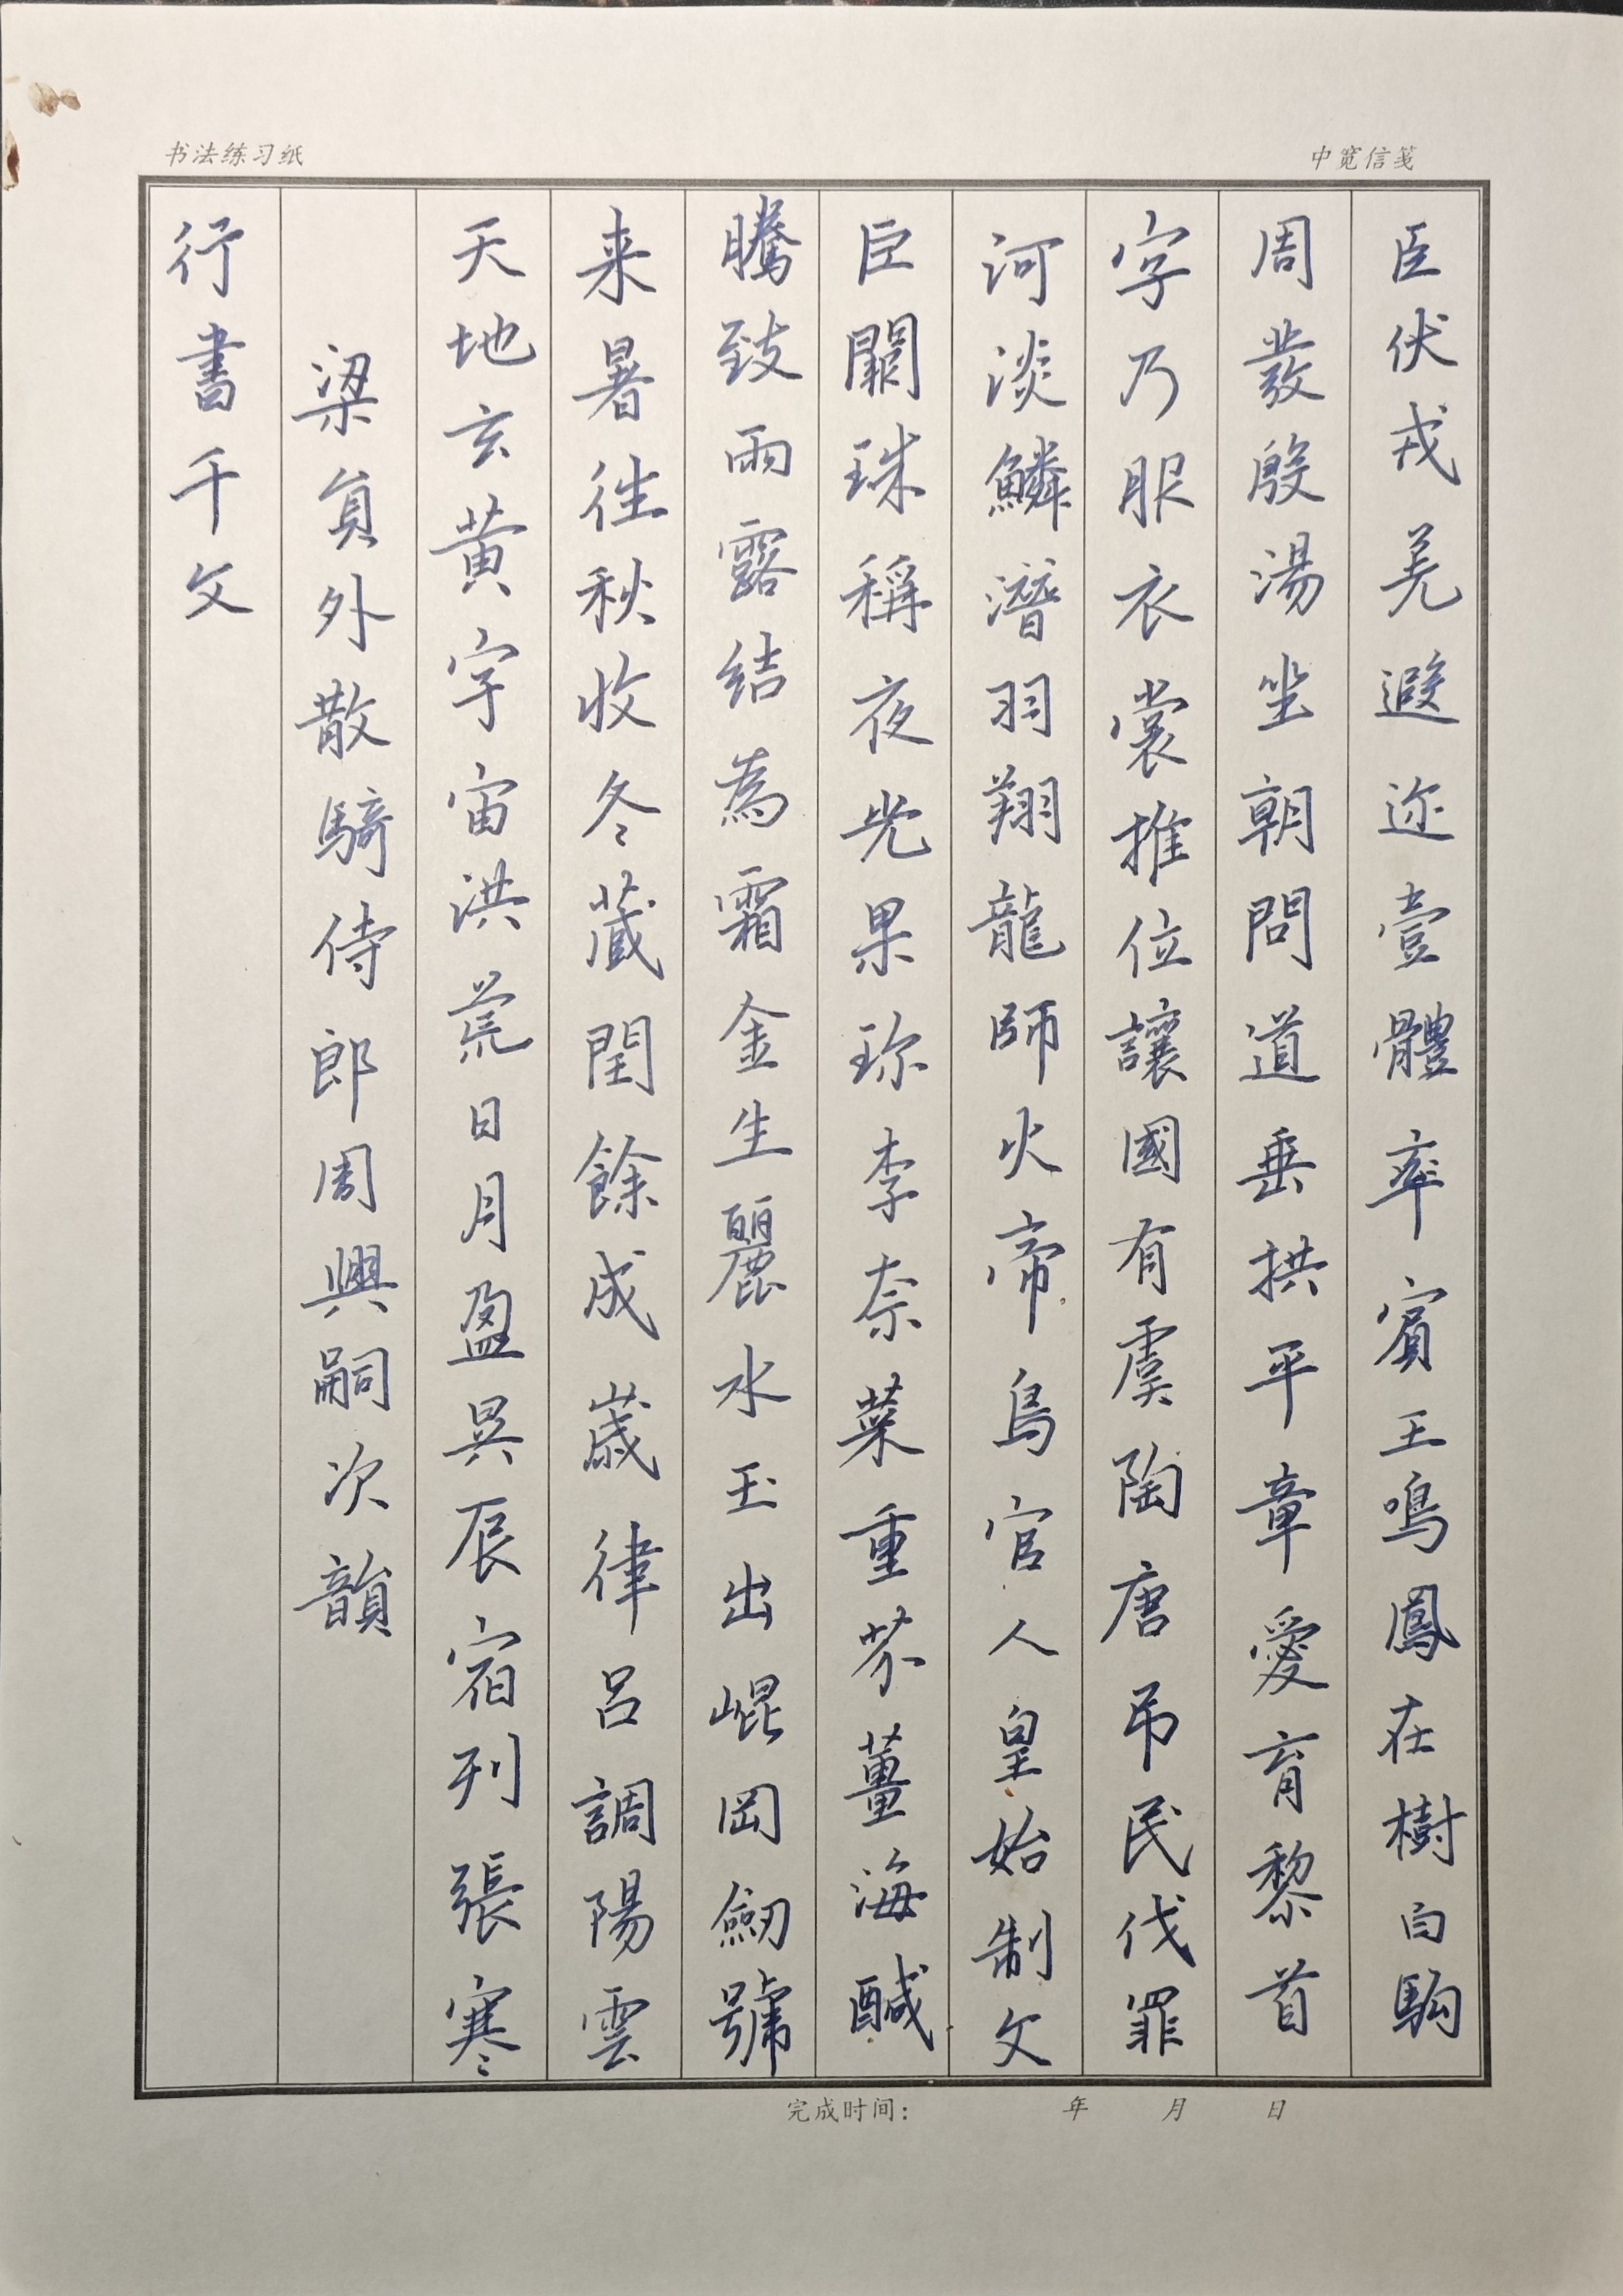 书法练习纸
中宽信笺
行書千文
梁員外散騎侍郎周興嗣次韻
天地玄黃宇宙洪荒日月盈昃辰宿列張寒
来暑往秋收冬藏閏餘成歲律呂調陽雲
騰致雨露結為霜金生麗水玉出崐岡劒號
巨闕珠稱夜光果珎李奈菜重芥薑海醎
河淡鱗潛羽翔龍師火帝鳥官人皇始制文
字乃服衣裳推位讓國有虞陶唐吊民伐罪
周發殷湯坐朝問道垂拱平章愛育黎首
臣伏戎羌遐迩壹體率賓王鳴鳳在樹白駒
完成时间： 年 月 日